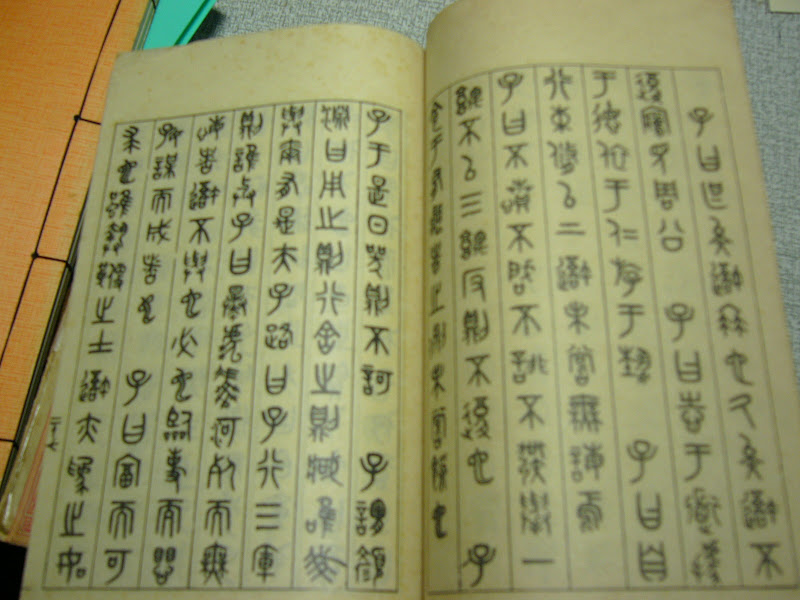 子曰甚矣吾衰也久矣吾不
復夢見周公　子曰志于道據
于德依于仁游于藝　子曰自
行束脩以上吾未嘗無誨焉
子曰不憤不啟不悱不發舉一
隅不以三隅反則不復也　子
食于有喪者之側未嘗飽也
子于是日哭則不歌　子謂顏
淵曰用之則行舍之則藏唯我
與爾有是夫子路曰子行三軍
則誰與子曰暴虎馮河死而無
悔者吾不與也必也臨事而懼
好謀而成者也　子曰富而可
求也雖執鞭之士吾亦為之如